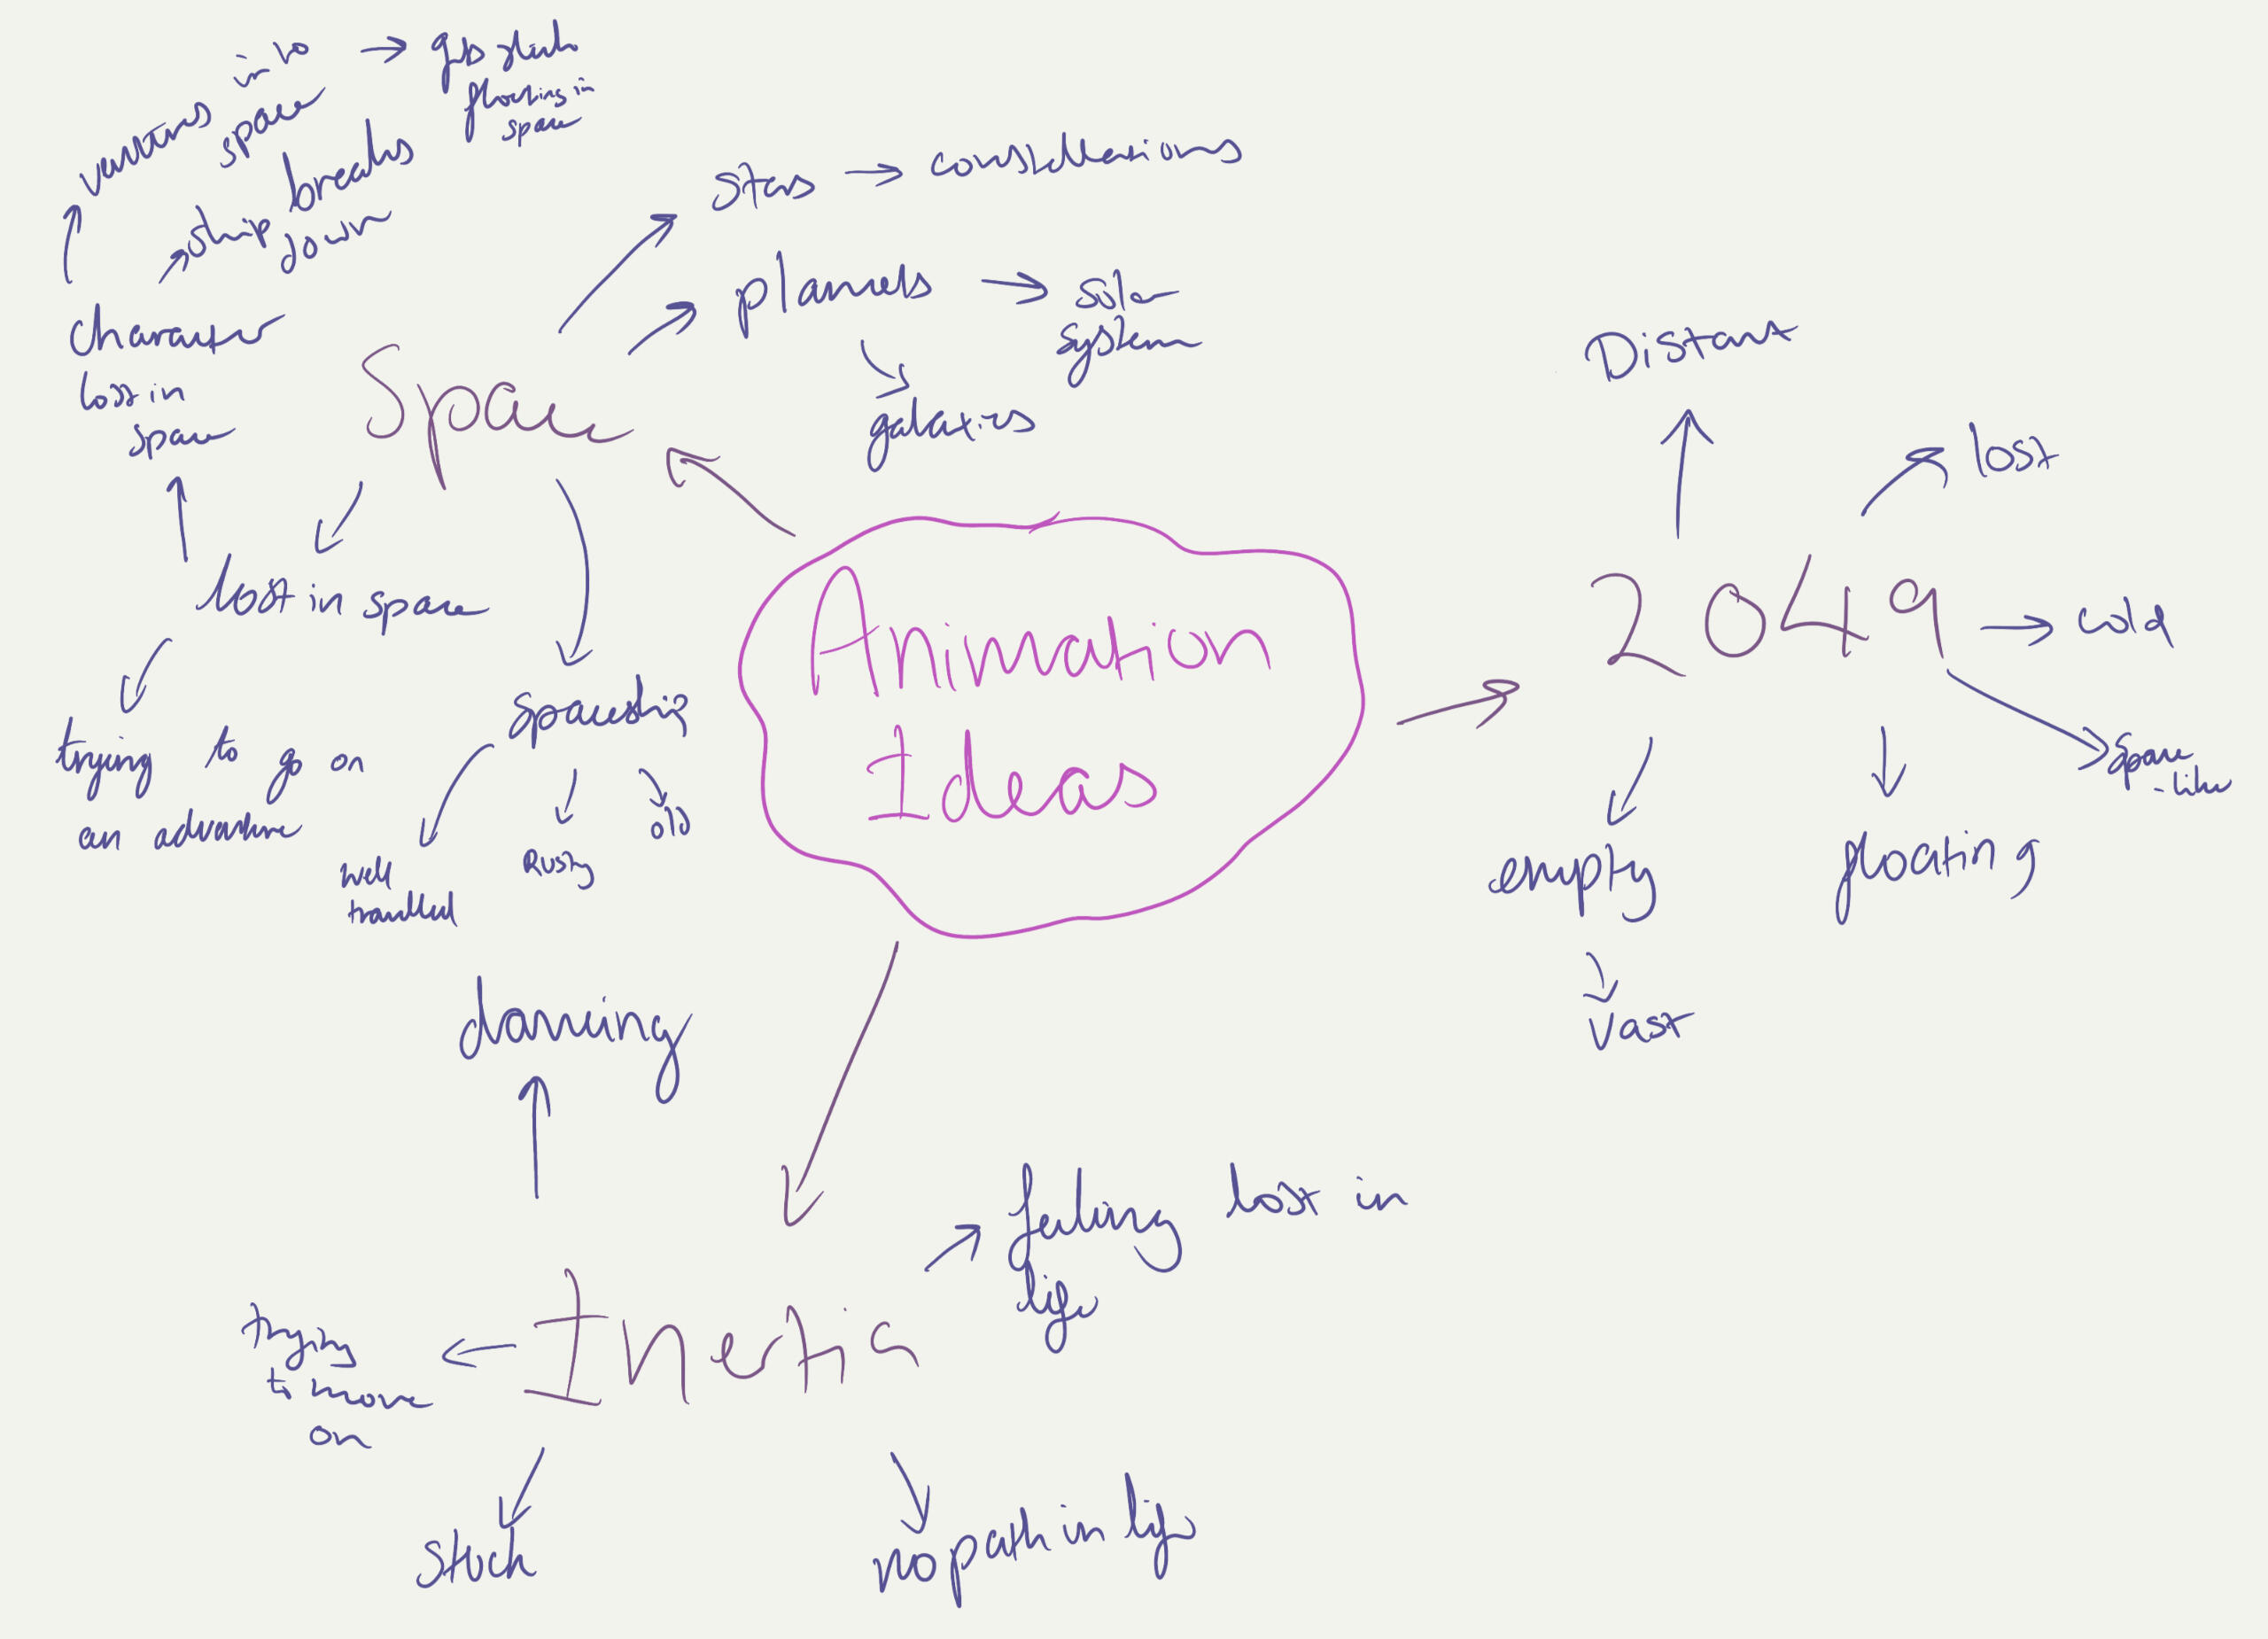 ventures into
space
gets stuck
floating in
space
ship breaks
down
character
lost in
space
stars
constellations
plannets
solar
system
galaxies
Space
lost in space
trying to go on
an adventure
spaceship
well
travelled
Rusty
old
Animation
Ideas
Distant
lost
2049
cold
space
-like
empty
floating
vast
dancing
feeling lost in
life
Inertia
trying
to move
on
stuck
no path in life